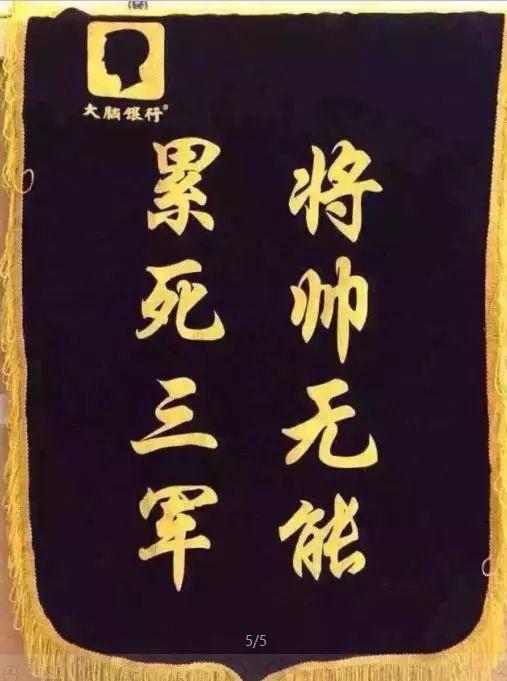 大脑银行®
将帅无能
累死三军
5/5